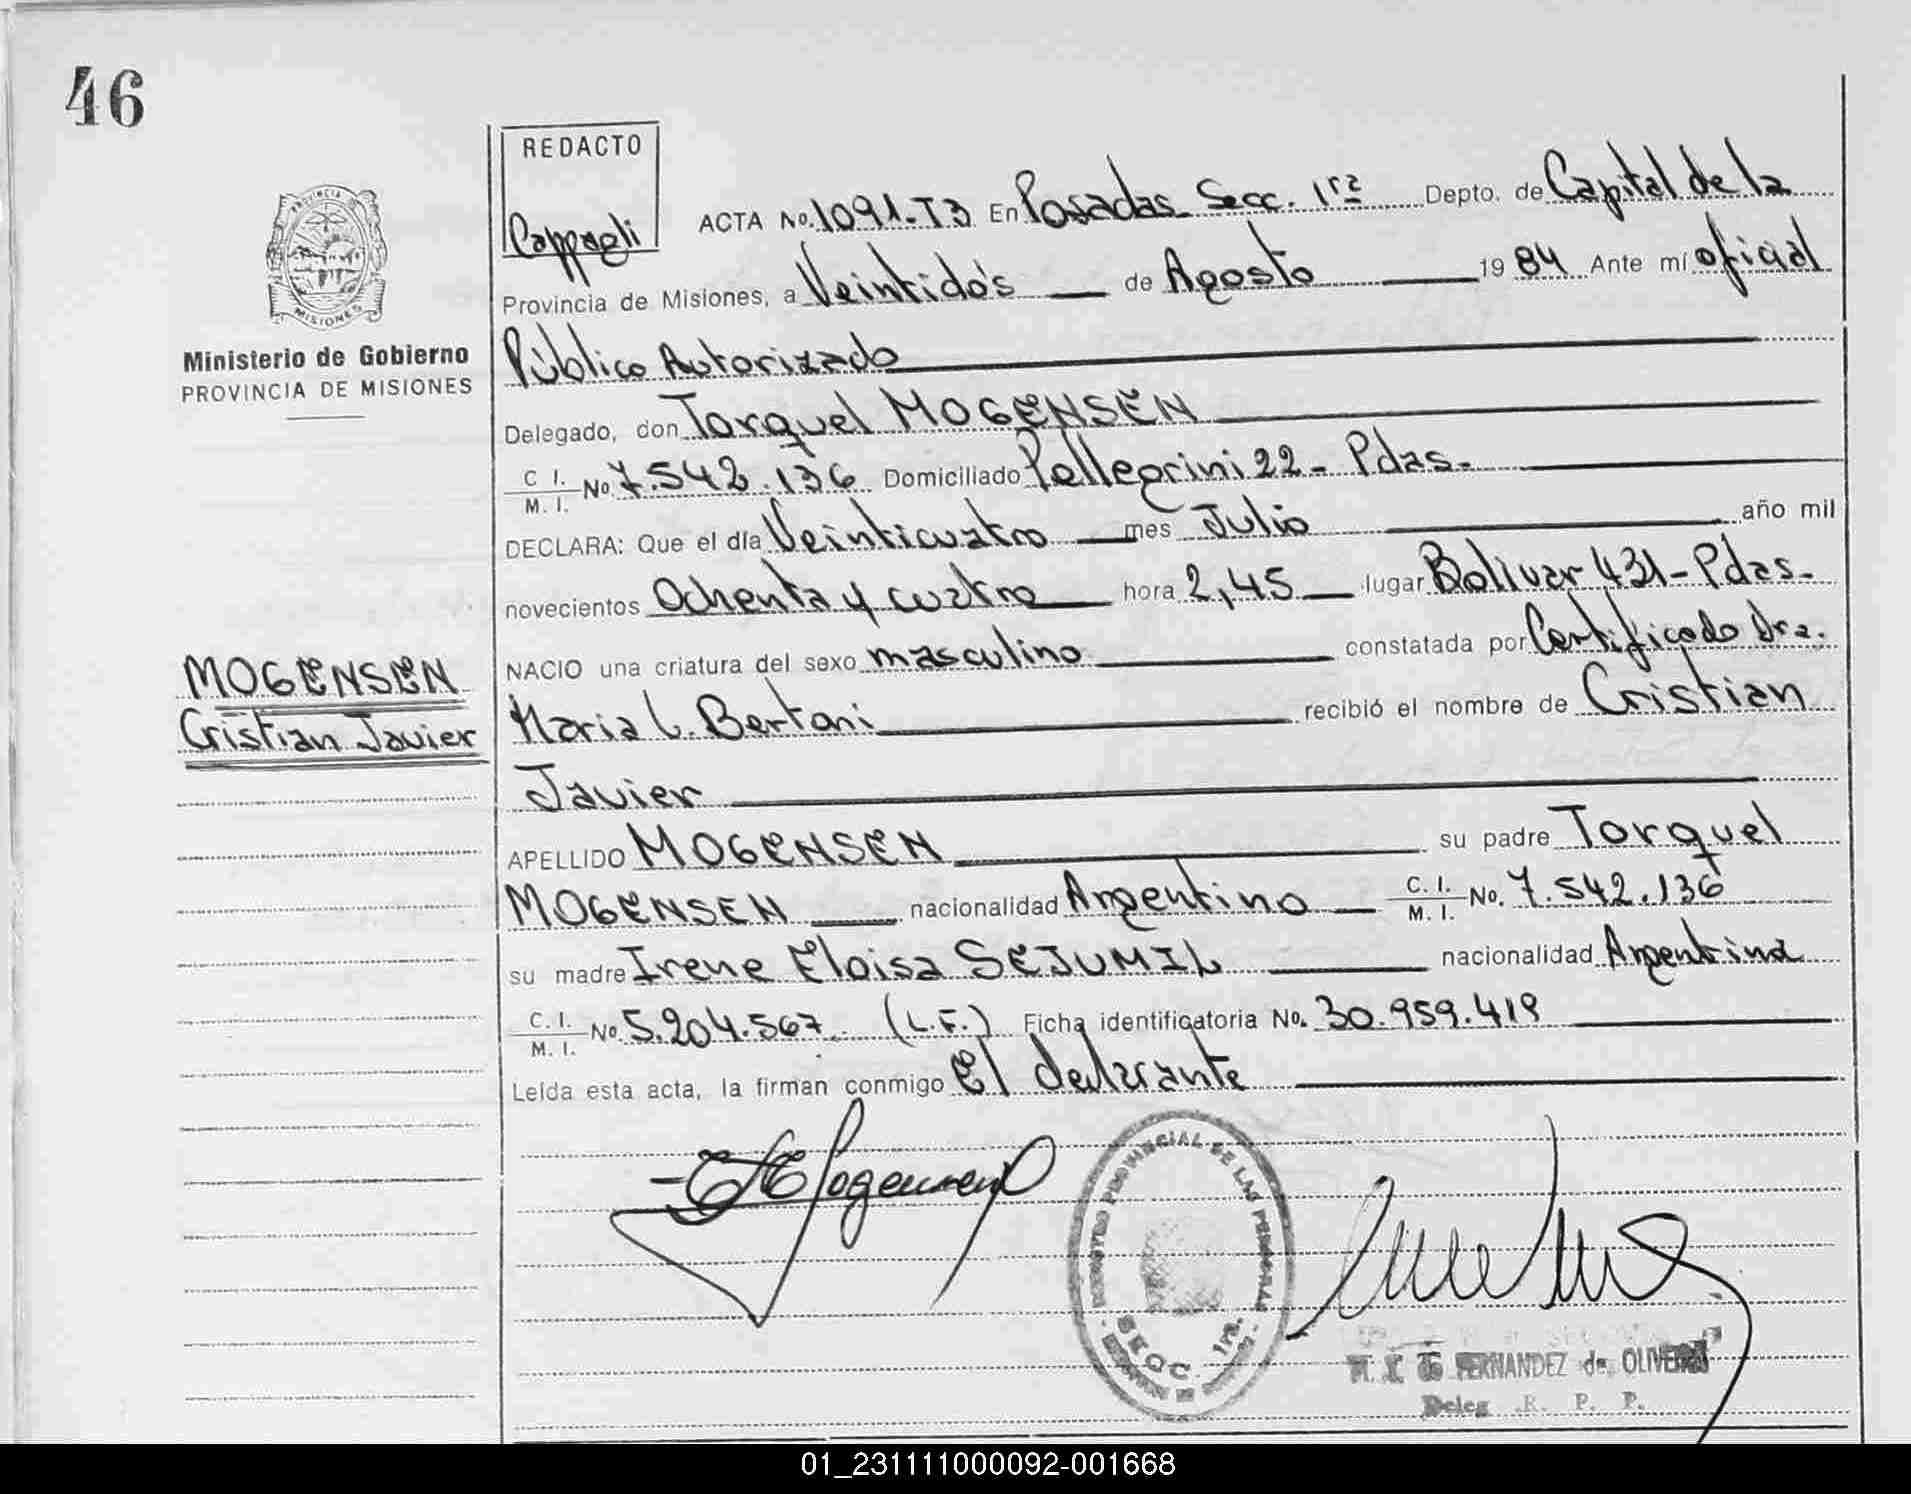 46
REDACTO
Cappagli
PROVINCIA
MISIONES
Ministerio de Gobierno
PROVINCIA DE MISIONES
MOGENSEN
Cristian Javier
ACTA No. 1091-T3 En Posadas Secc. 1ra Depto. de Capital de la
Provincia de Misiones, a Veintidós de Agosto 1984 Ante mí oficial
Público Autorizado
Delegado, don Torquel MOGENSEN
C I. M. I. No 7.542.136 Domiciliado Pellegrini 22 - Pdas-
DECLARA: Que el día Veinticuatro mes Julio año mil
novecientos Ochenta y cuatro hora 2,45 lugar Bolivar 431-Pdas-
NACIO una criatura del sexo masculino constatada por Certificado Dra.
Maria L. Bertoni recibió el nombre de Cristian
Javier
APELLIDO MOGENSEN su padre Torquel
MOGENSEN nacionalidad Argentino C. I. M. I. No. 7.542.136
su madre Irene Eloisa SEJUMIL nacionalidad Argentina
C. I. M. I. No 5.204.567 (L.F.) Ficha identificatoria No. 30.959.419
Leída esta acta, la firman conmigo El declarante
PROVINCIAL DE LAS PERSONAS
SECC. 1ra.
FERNANDEZ de OLIVERA
Deleg. R. P. P.
01_231111000092-001668